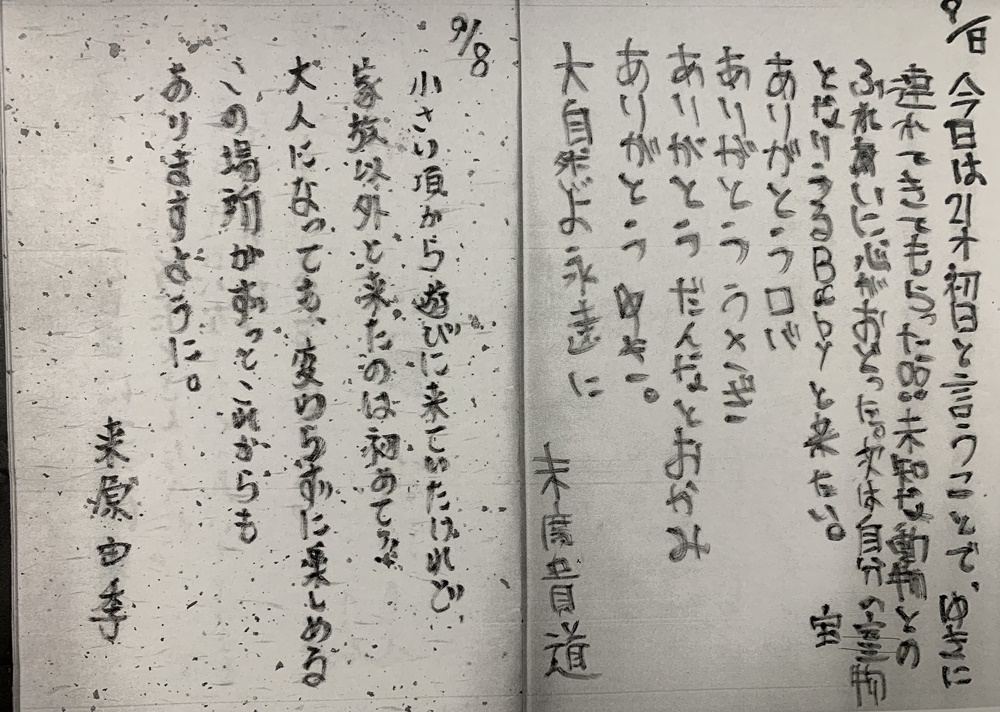 9/8 今日は21才初日と言うことで、ゆきに
連れてきてもらった。未知な動物との
ふれあいに心がおどった。次は自分の
となりうるBabyと来たい。
ありがとうロバ
ありがとううさぎ
ありがとうだんなとおかみ
ありがとうゆき。
大自然よ永遠に
道
9/8
小さい頃から遊びに来ていたけれど、
家族以外と来たのは初めてで、
大人になっても、変わらずに楽しめる
この場所がずっとこれからも
ありますように。
来原由季